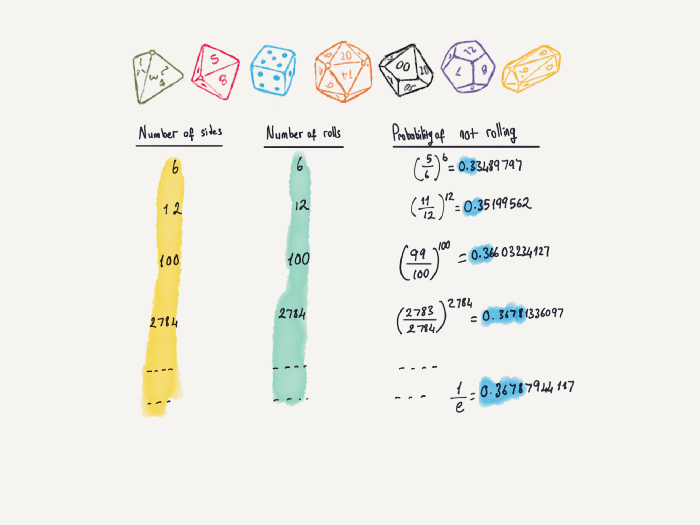 5
8
20
14
00
20
50
12
7
8
Number of sides Number of rolls Probability of not rolling
6 6 (5/6)^6 = 0.33489797
12 12 (11/12)^12 = 0.35199562
100 100 (99/100)^100 = 0.36603234127
2784 2784 (2783/2784)^2784 = 0.36781336097
---- ---- ----
--- ---- --- 1/e = 0.36787944117